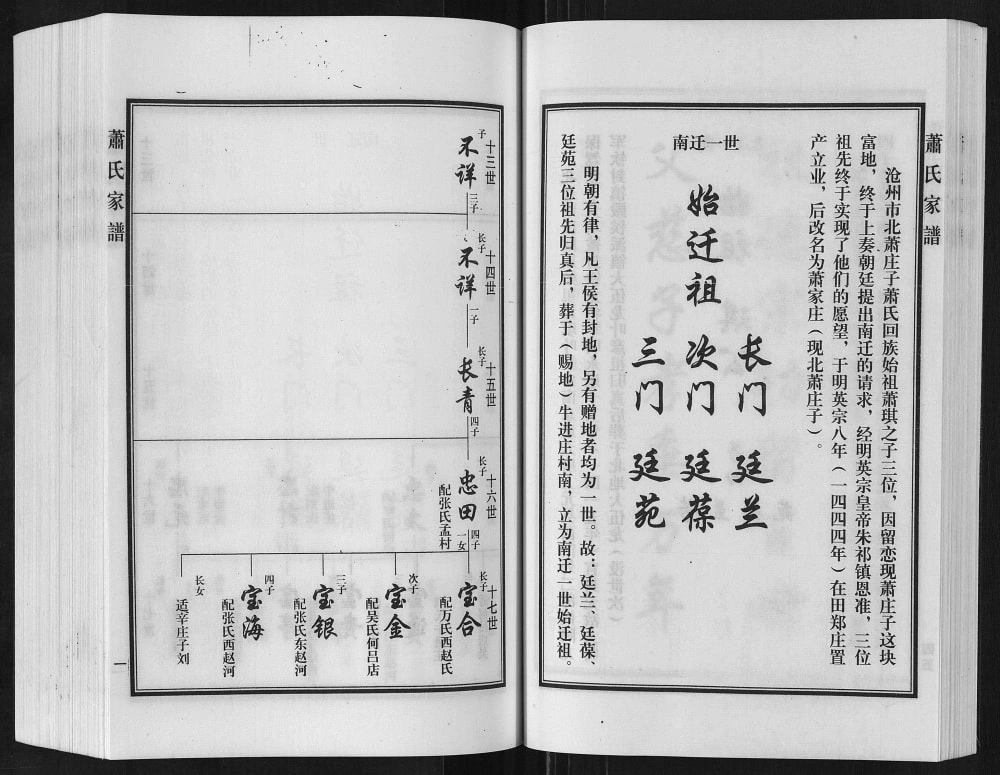 蕭氏家譜
沧州市北萧庄子萧氏回族始祖萧琪之子三位，因留恋现萧庄子这块
富地，终于上奏朝廷提出南迁的请求，经明英宗皇帝朱祁镇恩准，三位
祖先终于实现了他们的愿望，于明英宗八年（一四四四年）在田郑庄置
产立业，后改名为萧家庄（现北萧庄子）。
南迁一世
始迁祖
长门 廷兰
次门 廷葆
三门 廷苑
明朝有律，凡王侯有封地，另有赠地者均为一世。故：廷兰、廷葆、
廷苑三位祖先归真后，葬于（赐地）牛进庄村南，立为南迁一世始迁祖。
十三世
子
不详
三子
十四世
长子
不详
一子
十五世
长子
长青
四子
十六世
长子
忠田
配张氏孟村
四子
一女
十七世
长子
宝合
配万氏西赵氏
次子
宝金
配吴氏何吕店
三子
宝银
配张氏东赵河
四子
宝海
配张氏西赵河
长女
适辛庄子刘
蕭氏家譜
一